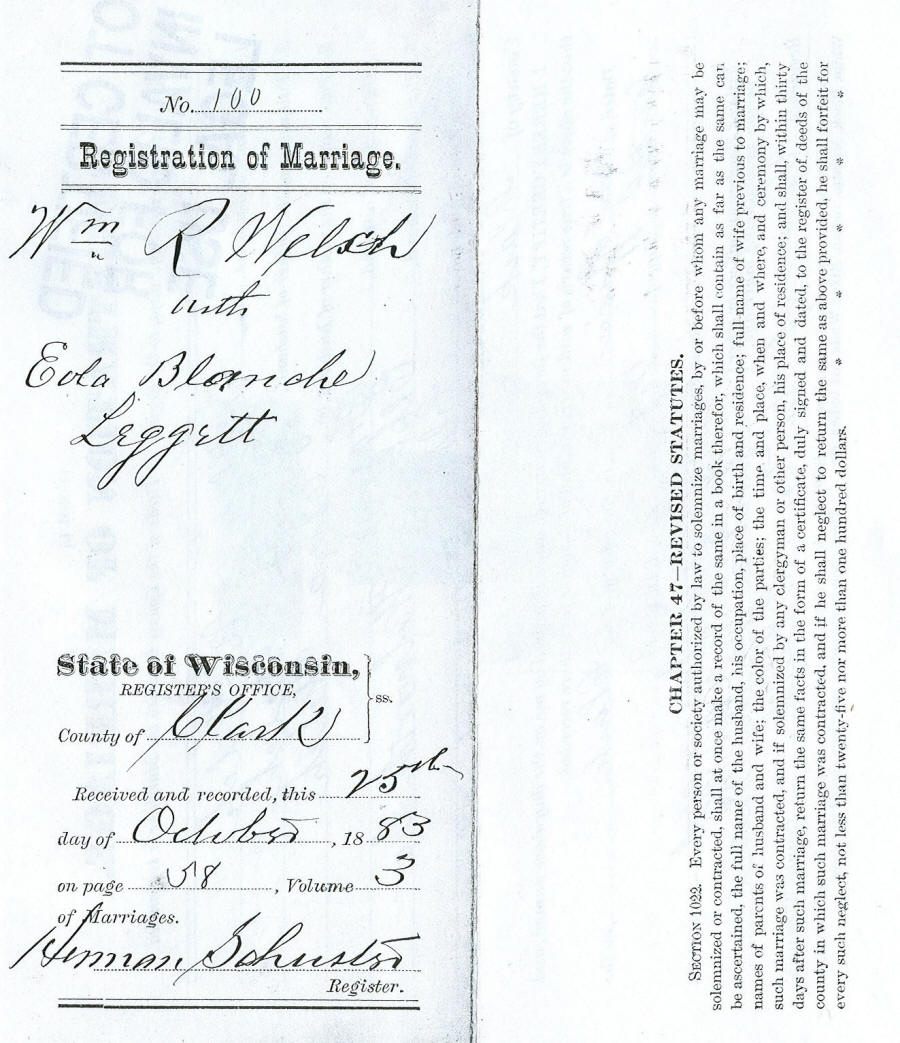 No. 100
Registration of Marriage.
Wm R Welsch
with
Eola Blanche
Leggett
State of Wisconsin,
REGISTER'S OFFICE,
ss.
County of Clark
Received and recorded, this 25th
day of October, 1883
on page 58, Volume 3
of Marriages.
Herman Schuster
Register.
CHAPTER 47—REVISED STATUTES.
SECTION 1022. Every person or society authorized by law to solemnize marriages, by or before whom any marriage may be
solemnized or contracted, shall at once make a record of the same in a book therefor, which shall contain as far as the same can
be ascertained, the full name of the husband, his occupation, place of birth and residence; full name of wife previous to marriage;
names of parents of husband and wife; the color of the parties; the time and place, when and where, and ceremony by which,
such marriage was contracted, and if solemnized by any clergyman or other person, his place of residence; and shall, within thirty
days after such marriage, return the same facts in the form of a certificate, duly signed and dated, to the register of deeds of the
county in which such marriage was contracted, and if he shall neglect to return the same as above provided, he shall forfeit for
every such neglect, not less than twenty-five nor more than one hundred dollars. * * * * *